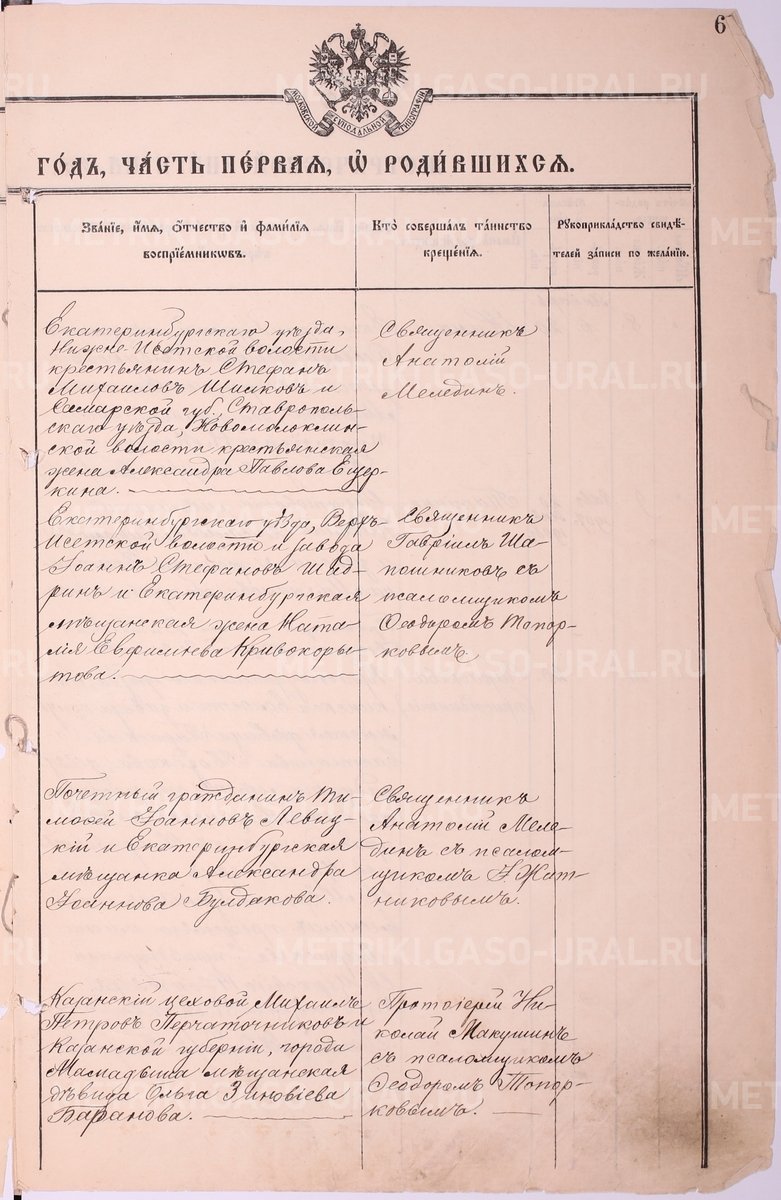 6
МОСКОВСКОЙ СѴНОДАЛЬНОЙ ТИПОГРАФІИ
ГО́ДЪ, ЧА́СТЬ ПЕ́РВАЯ, Ѿ РОДИ́ВШИХСЯ.
Зва́нїе, и҆́мя, ѻ҆́тчество и҆ фами́лїя
воспрїе́мникѡвъ.
Кто̀ соверша́лъ та́инство
креще́нїя.
Рꙋкоприкла́дство свидѣ́-
телей за́писи по жела́нїю.
Екатеринбургскаго уѣзда,
Нижне-Исетской волости
крестьянинъ Стефанъ
Михаиловъ Шилковъ и
Самарской губ., Ставрополь-
скаго уѣзда, Новомолоклин-
ской волости крестьянская
жена Александра Павлова Ещер-
кина.
Священникъ
Анатолій
Мелединъ.
Екатеринбургскаго уѣзда, Верхъ-
Исетской волости и завода
Іоаннъ Стефановъ Шад-
ринъ и Екатеринбургская
мѣщанская жена Ната-
лія Евфиміева Кривокоры-
това.
Священникъ
Гавріилъ Ша-
пошниковъ съ
псаломщикомъ
Ѳеодоромъ Топор-
ковымъ
Почетный гражданинъ Ти-
моѳей Іоанновъ Левиц-
кій и Екатеринбургская
мѣщанка Александра
Іоаннова Булдакова.
Священникъ
Анатолій Меле-
динъ съ псалом-
щикомъ І Жит-
никовымъ.
Казанскій цеховой Михаилъ
Петровъ Перчаточниковъ и
Казанской губерніи, города
Мамадыша мѣщанская
дѣвица Ольга Зиновіева
Баранова.
Протоіерей Ни-
колай Макушинъ
съ псаломщикомъ
Ѳеодоромъ Топор-
ковымъ.
METRIKI.GASO-URAL.RU